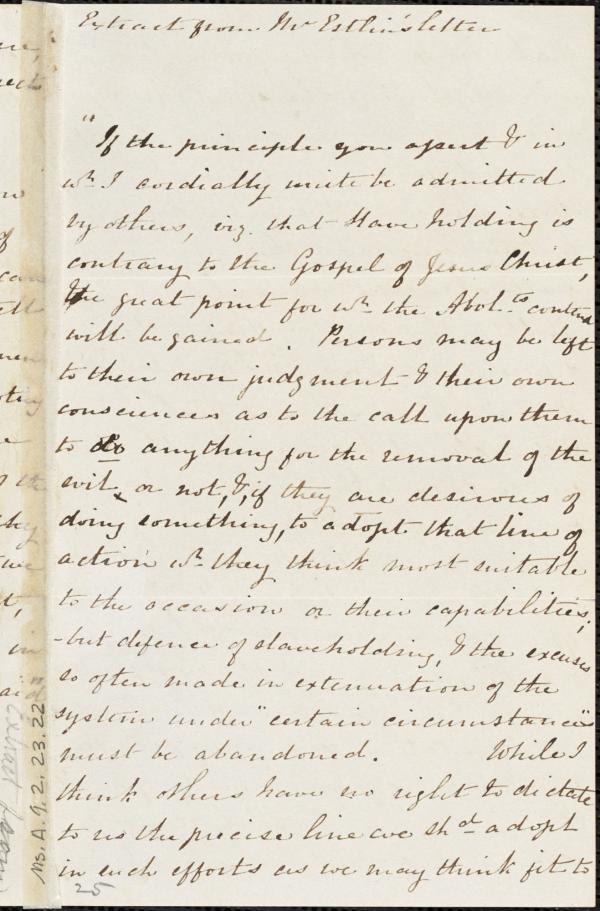 Extract from Mr Estlin's letter
"If the principle you assert & in
wh. I cordially unite be admitted
by others, viz. that Slave holding is
contrary to the Gospel of Jesus Christ,
the great point for wh. the Abol.ts contend
will be gained. Persons may be left
to their own judgment & their own
consciences as to the call upon them
to do anything for the removal of the
evil, or not, &, if they are desirous of
doing something, to adopt that line of
action wh. they think most suitable
to the occasion or their capabilities;
-but defence of slaveholding, & the excuses
so often made in extenuation of the
system under "certain circumstances"
must be abandoned. While I
think others have no right to dictate
to us the precise line we shd. adopt
in such efforts as we may think fit to
25
Ms. A. 9. 2. 23. 22